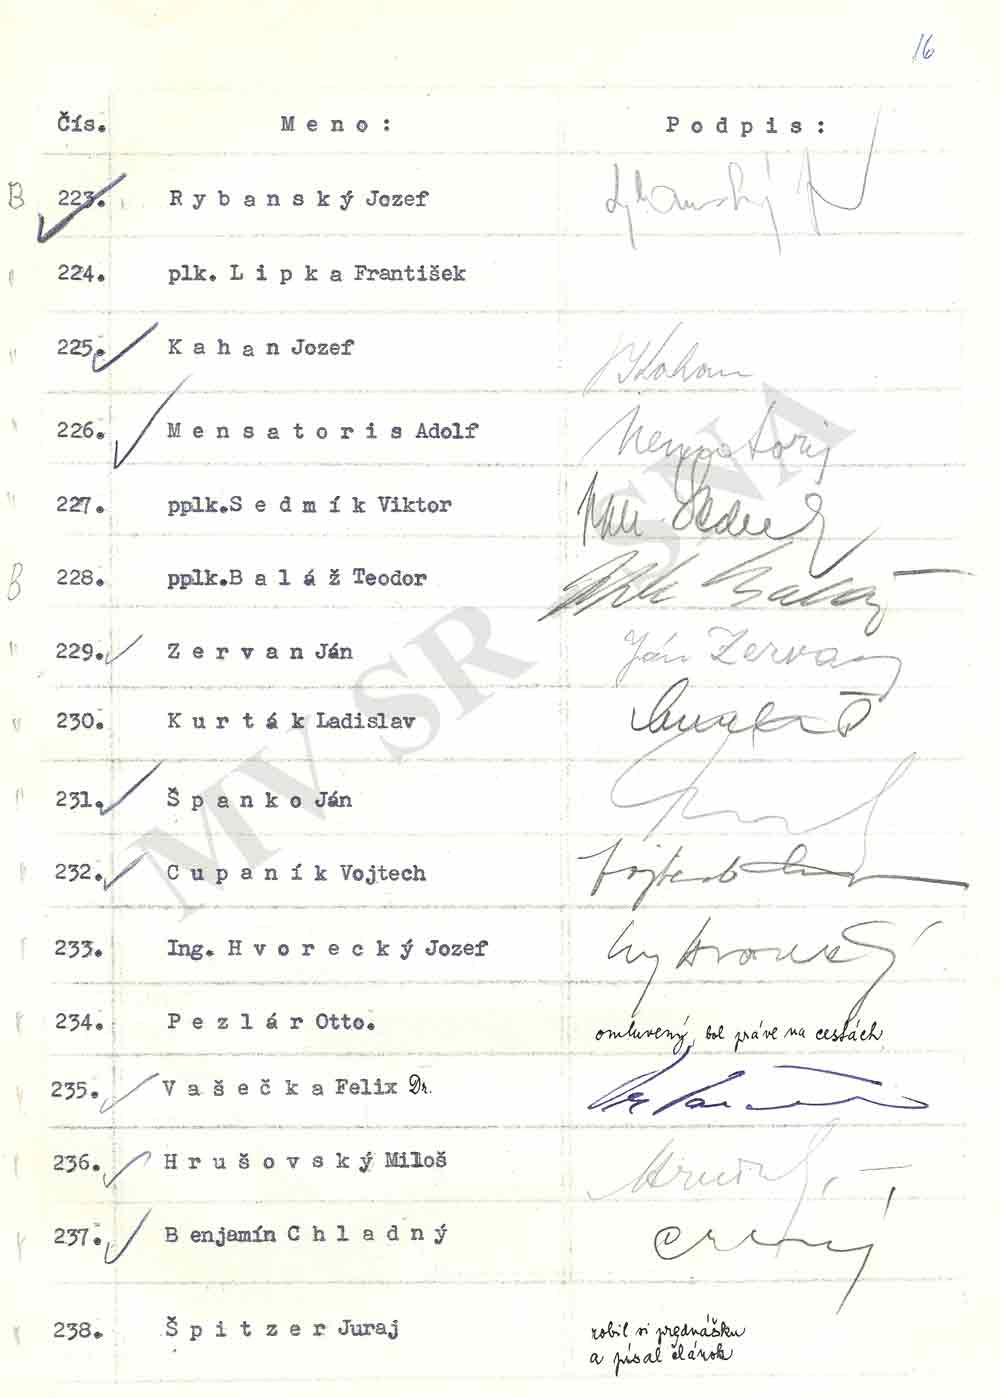 16
Čís. Meno: Podpis:
B 223. Rybanský Jozef
224. plk. Lipka František
225. Kahan Jozef JKahan
226. Mensatoris Adolf Mensatoris
227. pplk.Sedmík Viktor
B 228. pplk.Baláž Teodor Baláž
229. Zervan Ján Ján Zervan
230. Kurták Ladislav
231. Španko Ján
232. Cupaník Vojtech Vojtech
233. Ing. Hvorecký Jozef
234. Pezlár Otto. omluvený, bol práve na cestách
235. Vašečka Felix Dr.
236. Hrušovský Miloš
237. Benjamín Chladný
238. Špitzer Juraj robil si prednášku
a písal článok
MV SR SNA